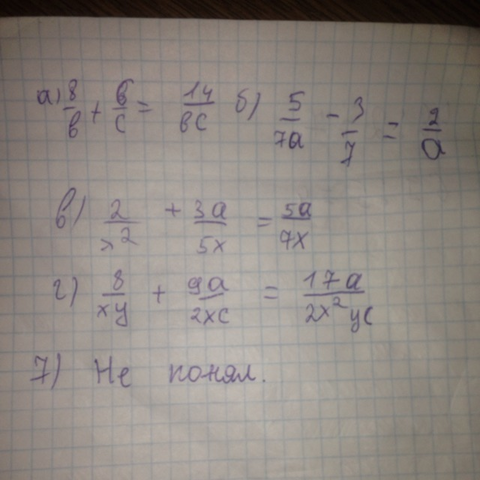 а) 8/в + в/с = 14/вс б) 5/7а - 3/7 = 2/а
в) 2/x² + 3а/5x = 5а/7x
г) 8/xy + 9а/2xc = 17а/2x²yc
7) Не понял.